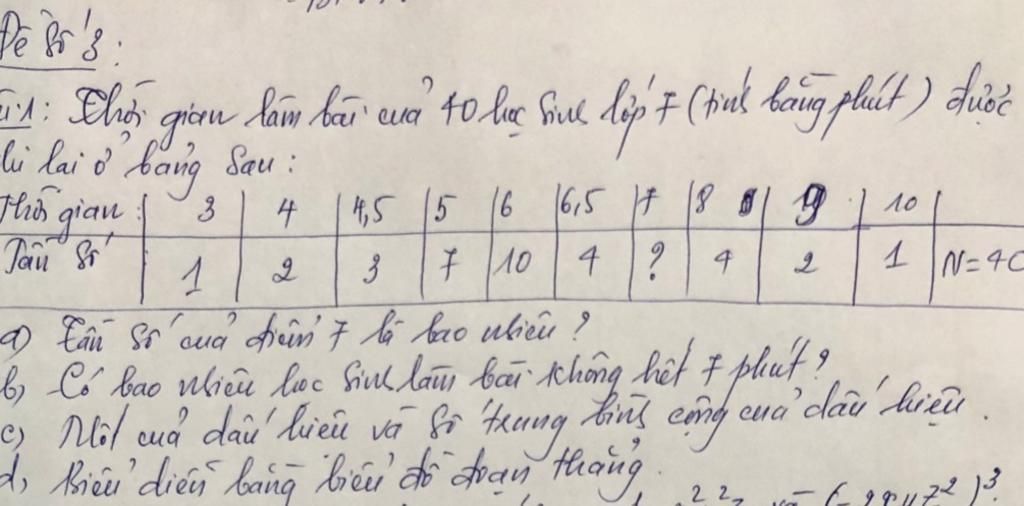 Đề số 3:
Thời gian làm bài của 40 học sinh lớp 7 (tính bằng phút) được
lại ở bảng sau:
Thời gian: 3 4 4,5 5 6 6,5 7 8 9 10
Tần số 1 2 3 7 10 4 ? 4 2 1 N=40
a) Tần số của điểm 7 là bao nhiêu?
b) Có bao nhiêu học sinh làm bài không hết 7 phút?
c) Mốt của dấu hiệu và số trung bình cộng của dấu hiệu.
d, Biểu diễn bằng biểu đồ đoạn thẳng.